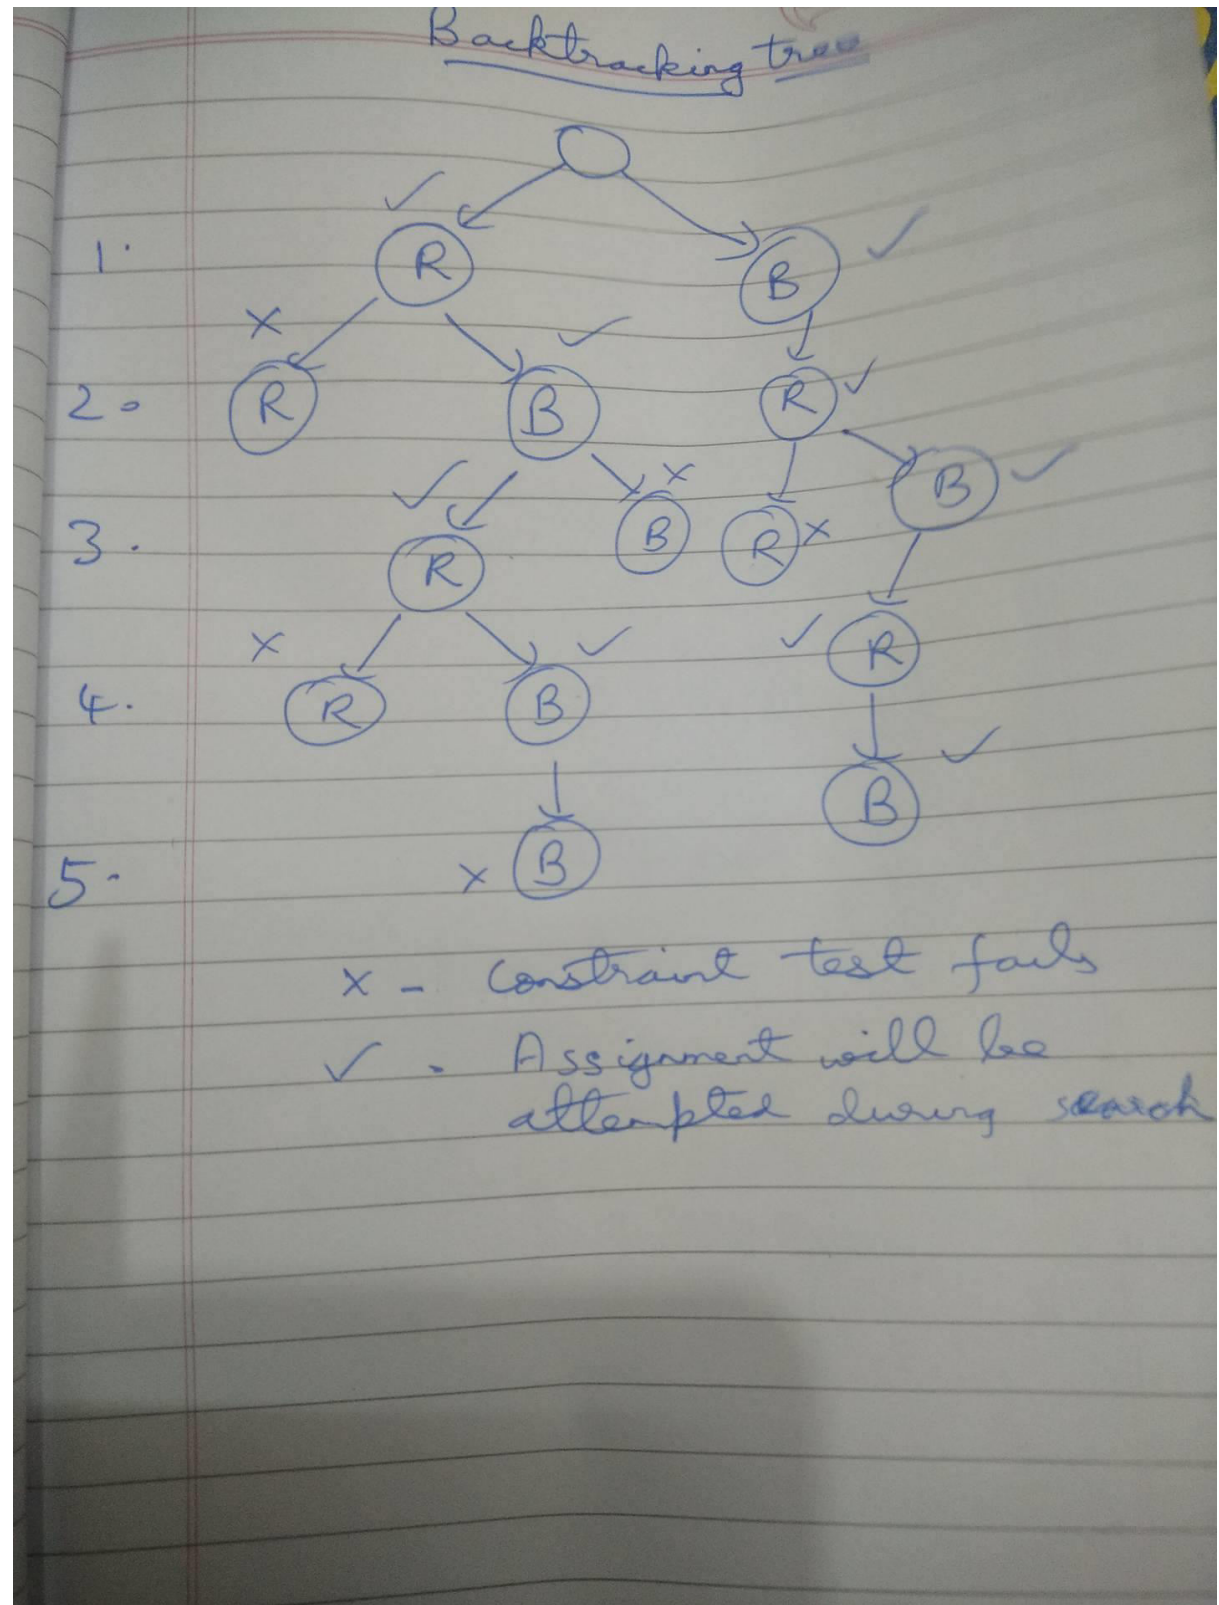 Backtracking tree
✓
1. R B ✓
x ✓
2. R B R ✓
✓ x B ✓
3. R B R x
x ✓ ✓ R
4. R B
✓
B
5. x B
x - Constraint test fails
✓ - Assignment will be
attempted during search